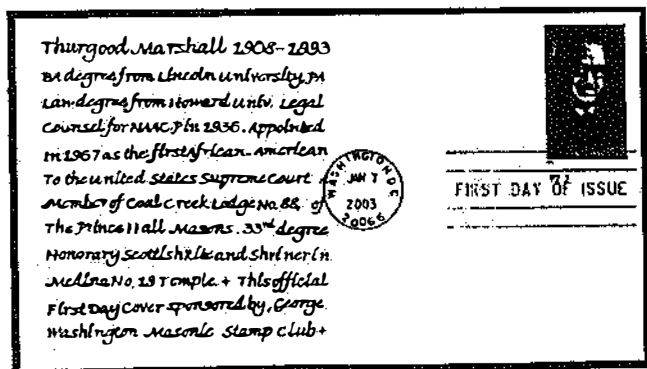 Thurgood Marshall 1908-1993
BA degree from Lincoln University, PA
Law degree from Howard Univ. Legal
Counsel for NAACP in 1936. Appointed
in 1967 as the first African-American
To the United States Supreme Court
Member of Coal Creek Lodge No. 88, of
The Prince Hall Masons. 33rd degree
Honorary Scottish Rite and Shriner in
Medina No. 19 Temple + This official
First Day Cover sponsored by, George
Washington Masonic Stamp Club +
WASHINGTON DC
JAN 7
2003
20066
FIRST DAY OF ISSUE